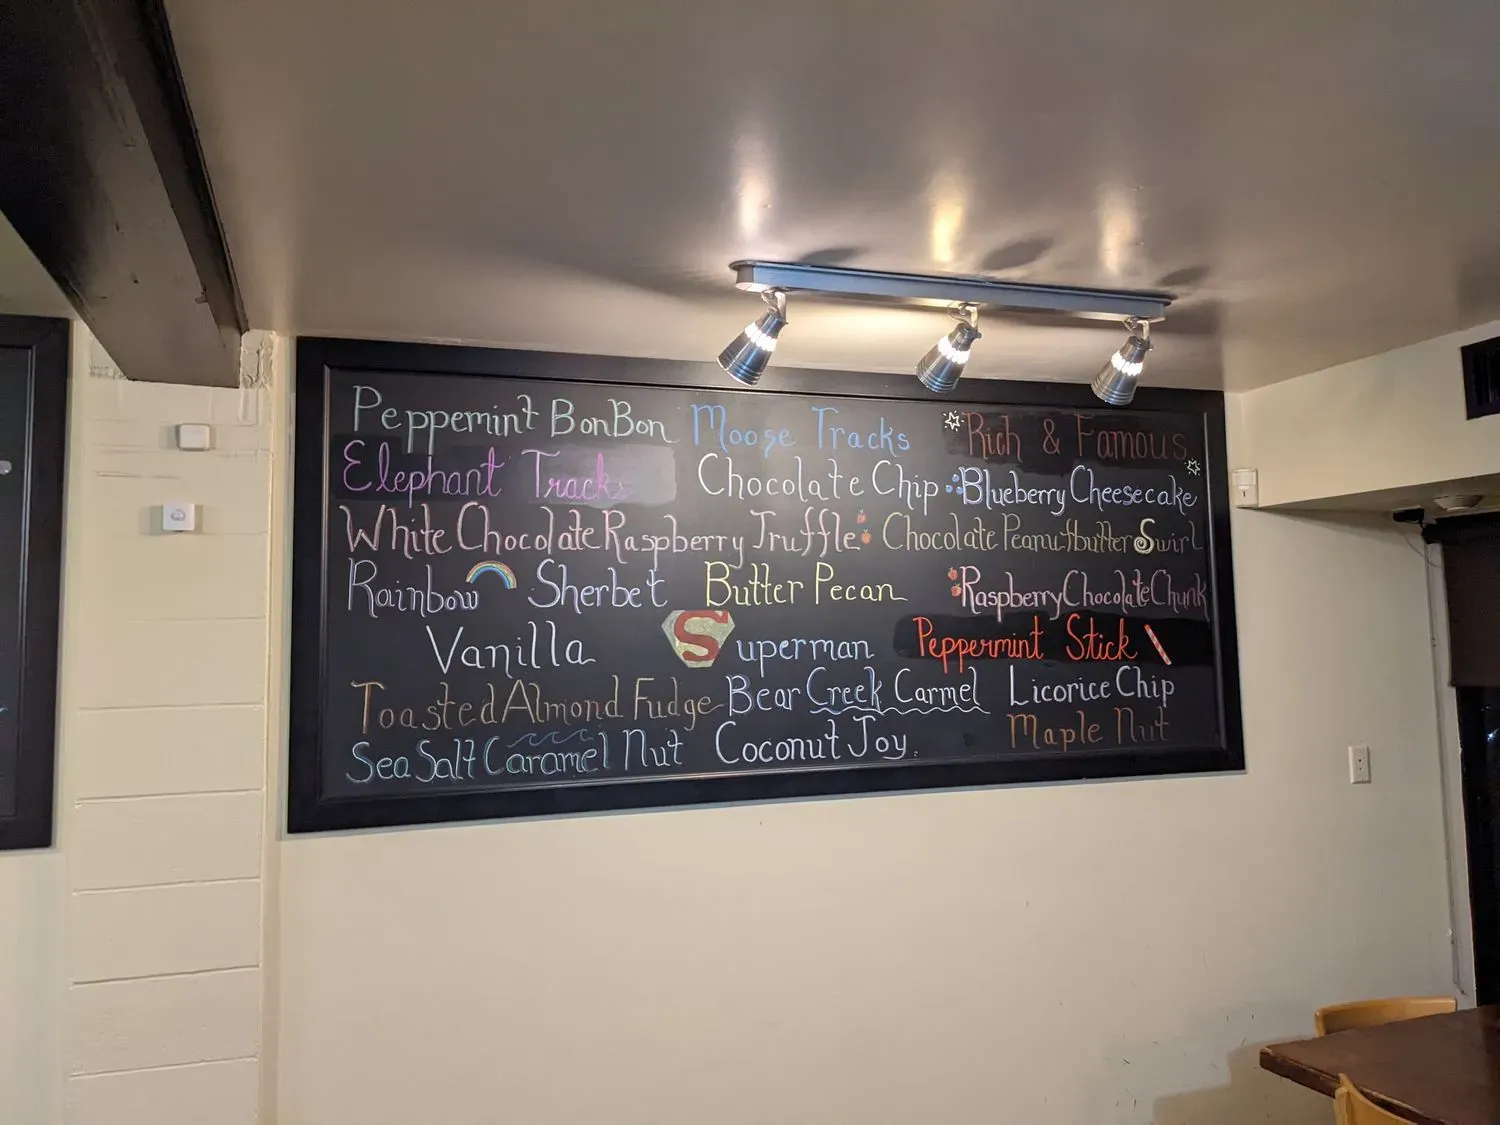 Peppemint BonBon Moose Tracks Rich & Famous
Elephant Tracks Chocolate Chip Blueberry Cheesecake
White Chocolate Raspberry Truffle Chocolate Peanutbutter Swirl
Rainbow Sherbet Butter Pecan Raspberry Chocolate Chunk
Vanilla Superman Peppermint Stick
Toasted Almond Fudge Bear Creek Carmel Licorice Chip
Sea Salt Caramel Nut Coconut Joy. Maple Nut